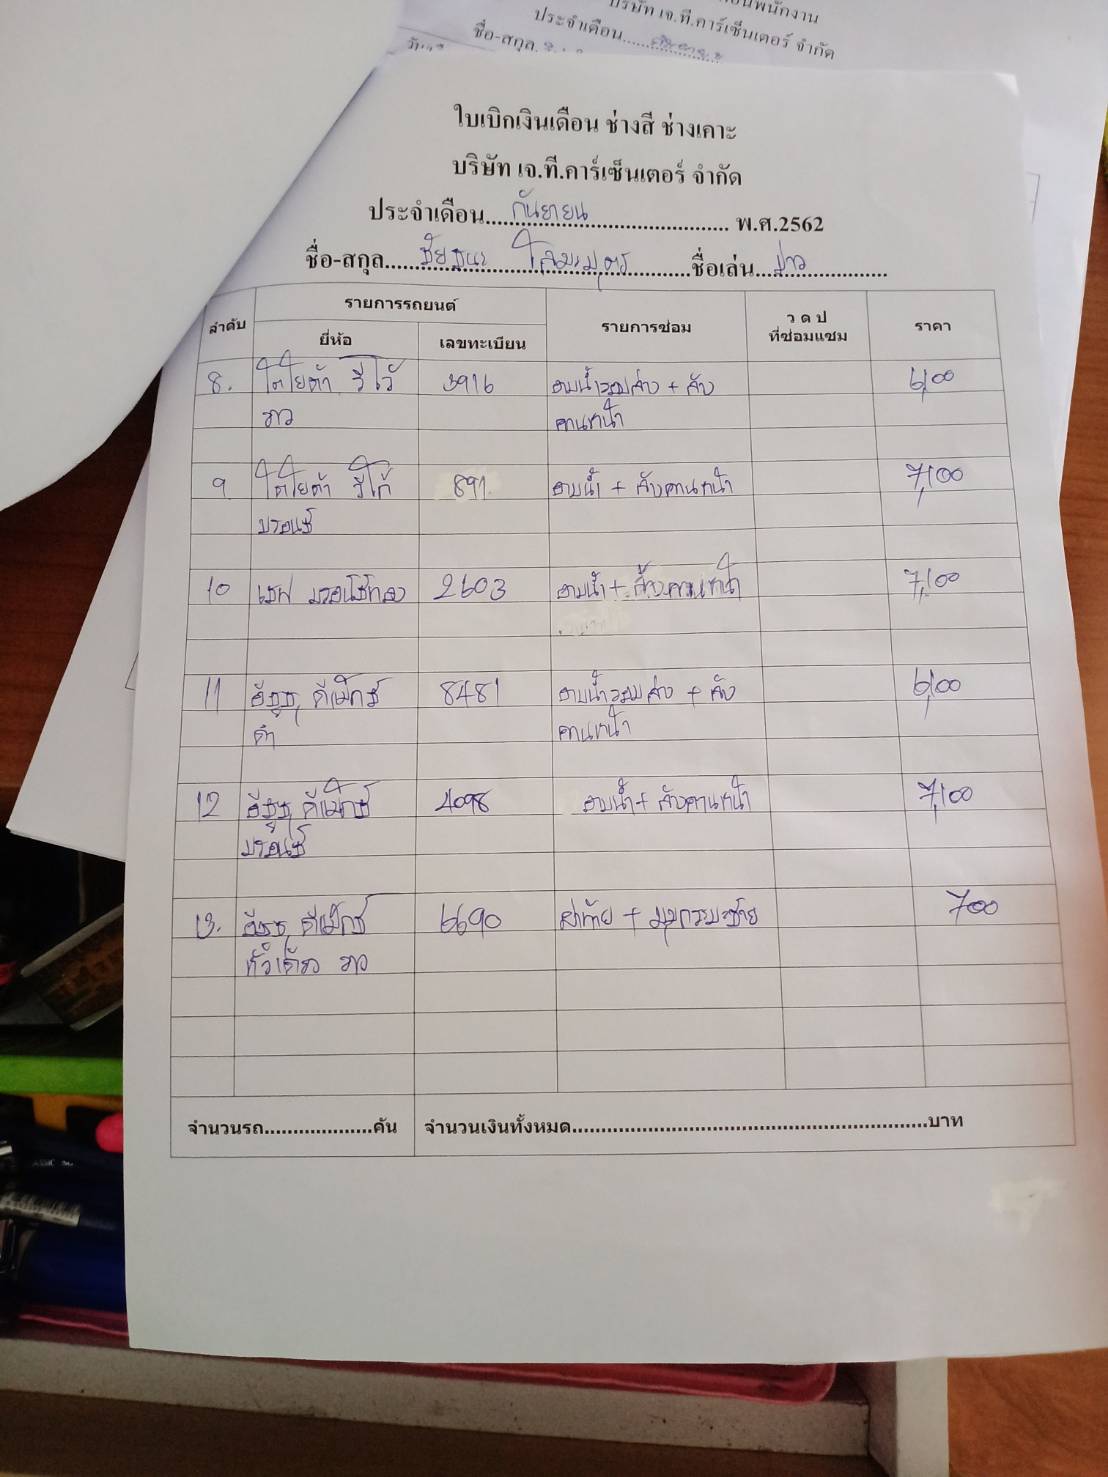 บริษัท เจ.ที.คาร์เซ็นเตอร์ จำกัด
ประจำเดือน
ชื่อ-สกุล
ใบเบิกเงินเดือน ช่างสี ช่างเคาะ
บริษัท เจ.ที.คาร์เซ็นเตอร์ จำกัด
ประจำเดือน กันยายน พ.ศ.2562
ชื่อ-สกุล ชัยชนะ ชื่อเล่น
ลำดับ รายการรถยนต์ รายการซ่อม ว ด ป ที่ซ่อมแซม ราคา
ยี่ห้อ เลขทะเบียน
8. โตโยต้า วีโว้ 3916 อาบน้ำรวมล่าง + ล้าง 6,100
ขาว คานหน้า
9 โตโยต้า วีโก้ 891 อาบน้ำ + ล้างคานหน้า 7,100
บรอนซ์
10 เชฟ บรอนซ์ทอง 2603 อาบน้ำ + ล้างคานหน้า 7,100
11 อีซูซุ ดีแม็กซ์ 8481 อาบน้ำรวมล่าง + ล้าง 6,100
ดำ คานหน้า
12 อีซูซุ ดีแม็กซ์ 4098 อาบน้ำ + ล้างคานหน้า 7,100
บรอนซ์
13. อีซูซุ ดีแม็กซ์ 6690 ฝาท้าย + มุมกระบะซ้าย 700
หัวเดียว ขาว
จำนวนรถ....................คัน จำนวนเงินทั้งหมด....................บาท